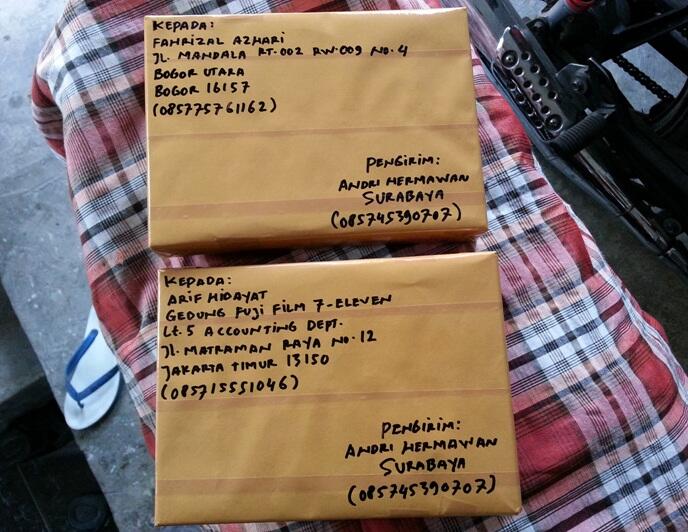 KEPADA:
FAHRIZAL AZHARI
JL. MANDALA RT.002 RW.009 NO.4
BOGOR UTARA
BOGOR 16157
(085775761162)
PENGIRIM:
ANDRI HERMAWAN
SURABAYA
(085745390707)
KEPADA:
ARIF HIDAYAT
GEDUNG FUJI FILM 7-ELEVEN
Lt.5 ACCOUNTING DEPT.
Jl. MATRAMAN RAYA NO.12
JAKARTA TIMUR 13150
(085715551046)
PENGIRIM:
ANDRI HERMAWAN
SURABAYA
(085745390707)